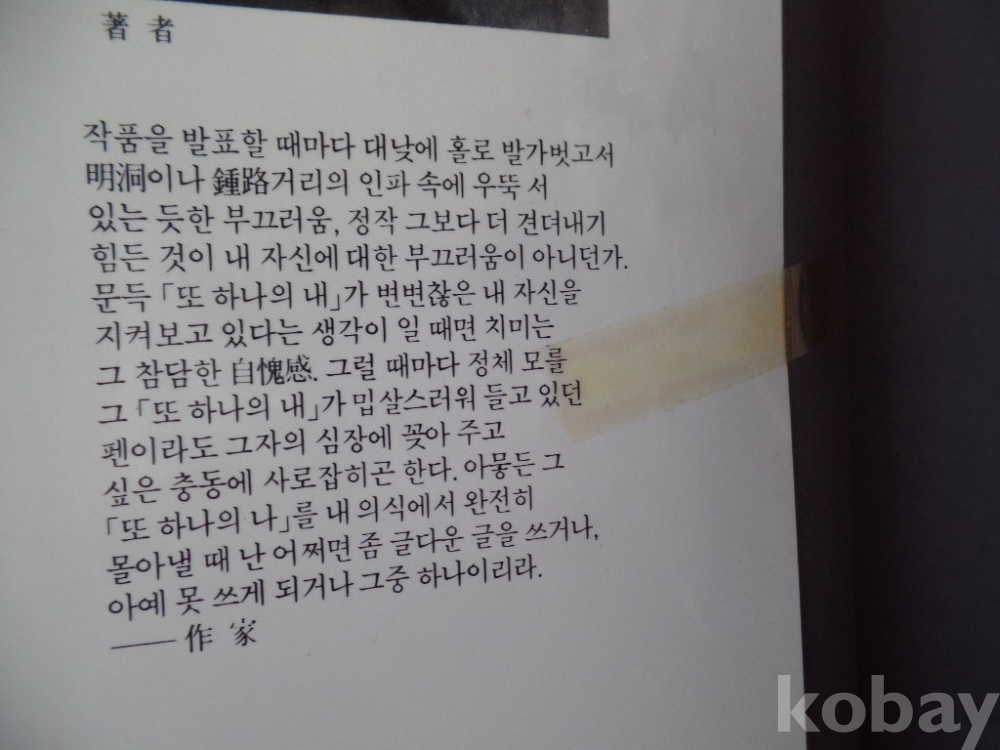 著 者
작품을 발표할 때마다 대낮에 홀로 발가벗고서
明洞이나 鍾路거리의 인파 속에 우뚝 서
있는 듯한 부끄러움, 정작 그보다 더 견뎌내기
힘든 것이 내 자신에 대한 부끄러움이 아니던가.
문득 「또 하나의 내」가 변변찮은 내 자신을
지켜보고 있다는 생각이 일 때면 치미는
그 참담한 自愧感. 그럴 때마다 정체 모를
그 「또 하나의 내」가 밉살스러워 들고 있던
펜이라도 그자의 심장에 꽂아 주고
싶은 충동에 사로잡히곤 한다. 아뭏든 그
「또 하나의 나」를 내 의식에서 완전히
몰아낼 때 난 어쩌면 좀 글다운 글을 쓰거나,
아예 못 쓰게 되거나 그중 하나이리라.
── 作 家
kobay